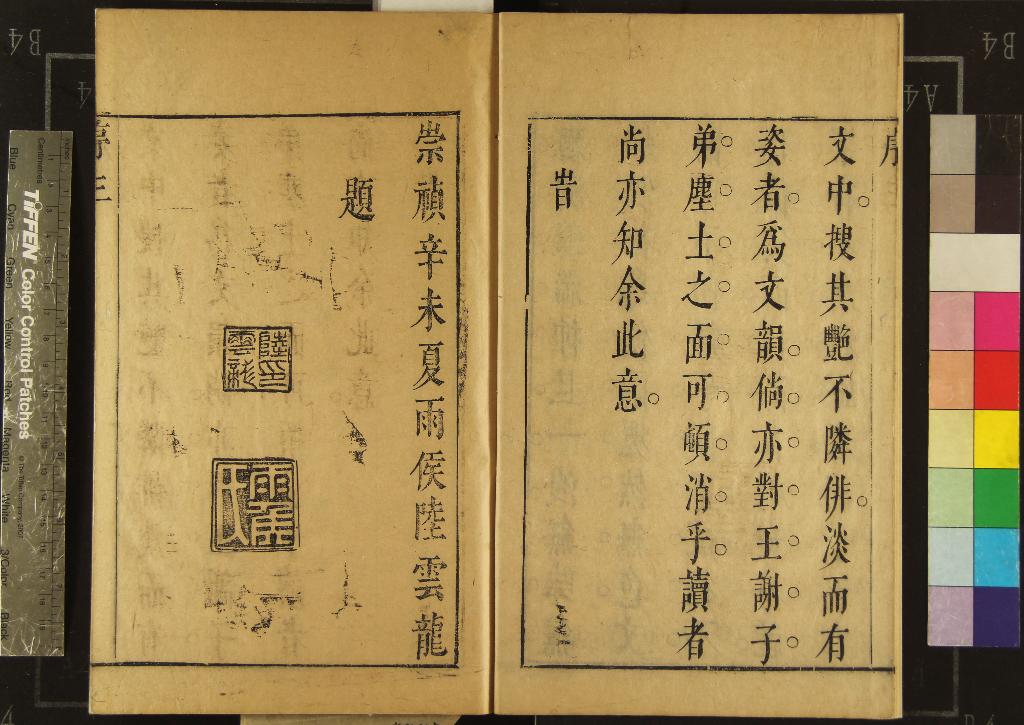 文中搜其艷不隣俳淡而有
姿者爲文韻倘亦對王謝子
弟塵土之面可頓消乎讀者
尚亦知余此意
旹
崇禎辛未夏雨侯陸雲龍
題
陸雲龍印
序三
B4
A4
B4
TIFFEN Color Control Patches
Centimetres
Blue
Cyan
Green
Yellow
Red
Magenta
White
3/Color
Black